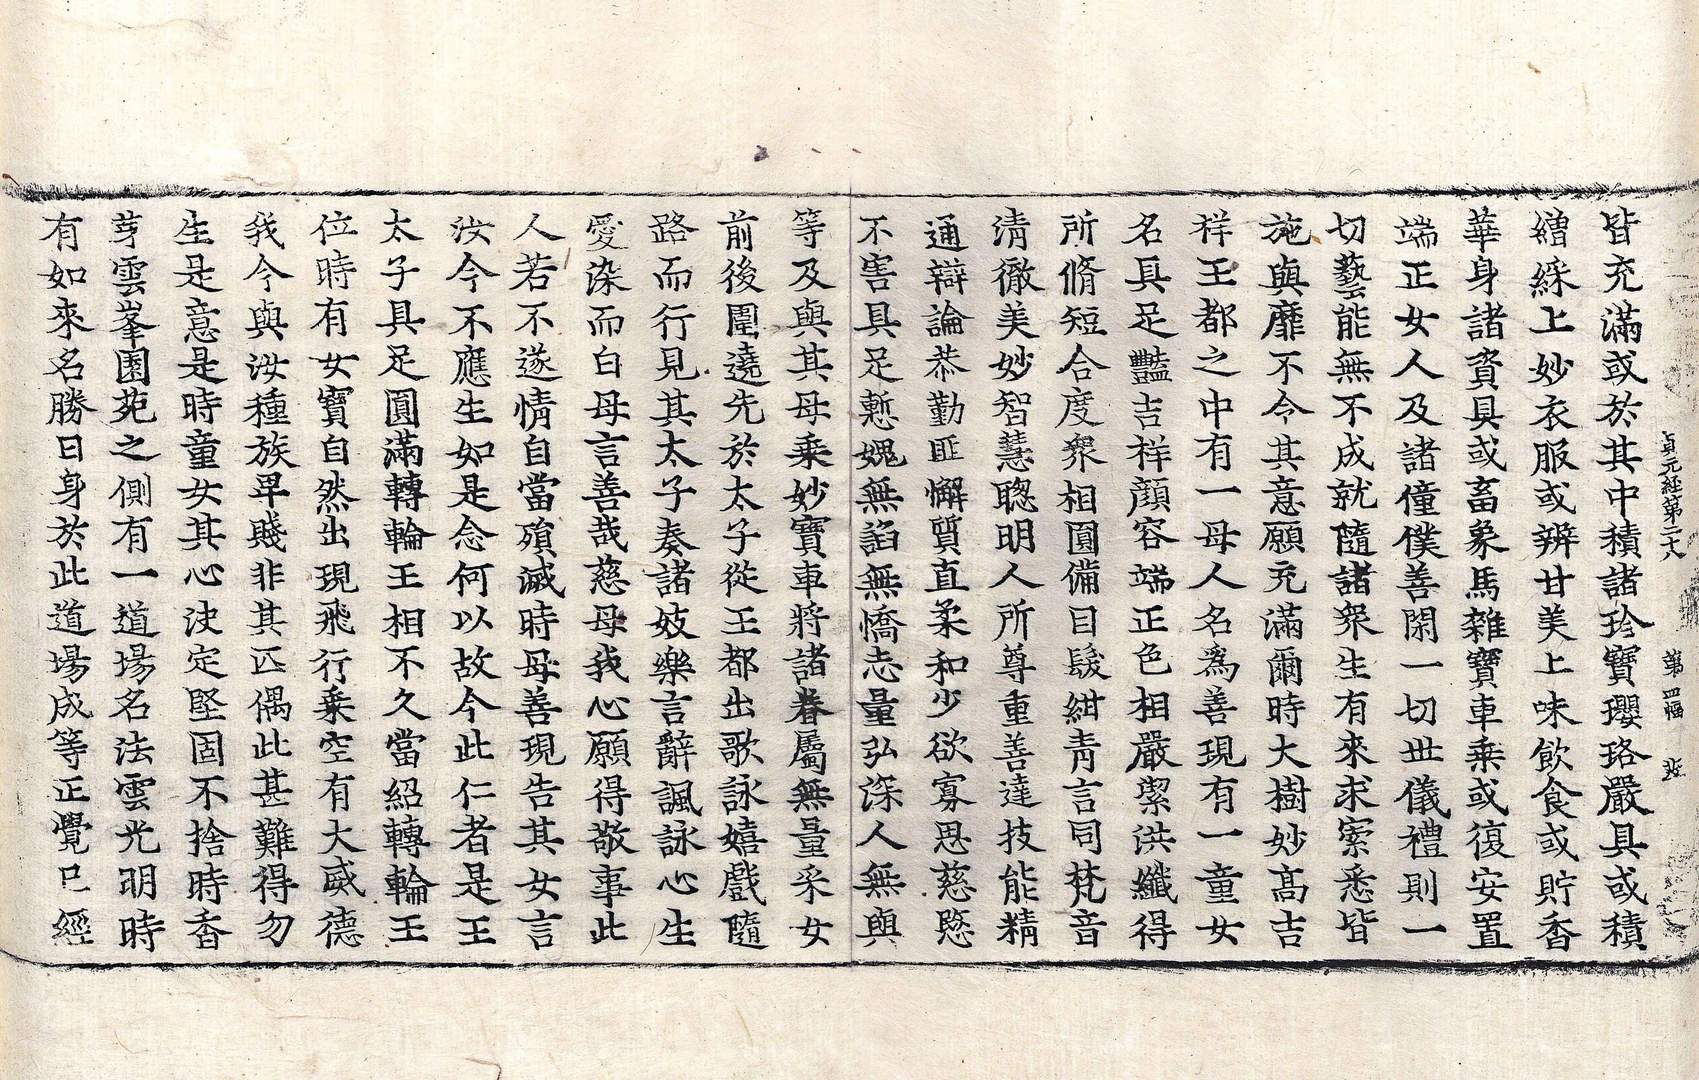 貞元經第二十八 第四幅 裴
皆充滿或於其中積諸珍寶瓔珞嚴具或積
繒綵上妙衣服或辨甘美上味飲食或貯香
華身諸資具或畜象馬雜寶車乘或復安置
端正女人及諸僮僕善閑一切世儀禮則一
切藝能無不成就隨諸眾生有來求索悉皆
施與靡不令其意願充滿爾時大樹妙高吉
祥王都之中有一母人名為善現有一童女
名具足豔吉祥顏容端正色相嚴潔洪纖得
所脩短合度眾相圓備目髮紺青言同梵音
清徹美妙智慧聰明人所尊重善達技能精
通辯論恭勤匪懈質直柔和少欲寡思慈愍
不害具足慙媿無諂無憍志量弘深人無與
等及與其母乘妙寶車將諸眷屬無量采女
前後圍遶先於太子從王都出歌詠嬉戲隨
路而行見其太子奏諸妓樂言辭諷詠心生
愛染而白母言善哉慈母我心願得敬事此
人若不遂情自當殞滅時母善現告其女言
汝今不應生如是念何以故今此仁者是王
太子具足圓滿轉輪王相不久當紹轉輪王
位時有女寶自然出現飛行乘空有大威德
我今與汝種族卑賤非其匹偶此甚難得勿
生是意是時童女其心決定堅固不捨時香
芽雲峯園苑之側有一道場名法雲光明時
有如來名勝日身於此道場成等正覺已經